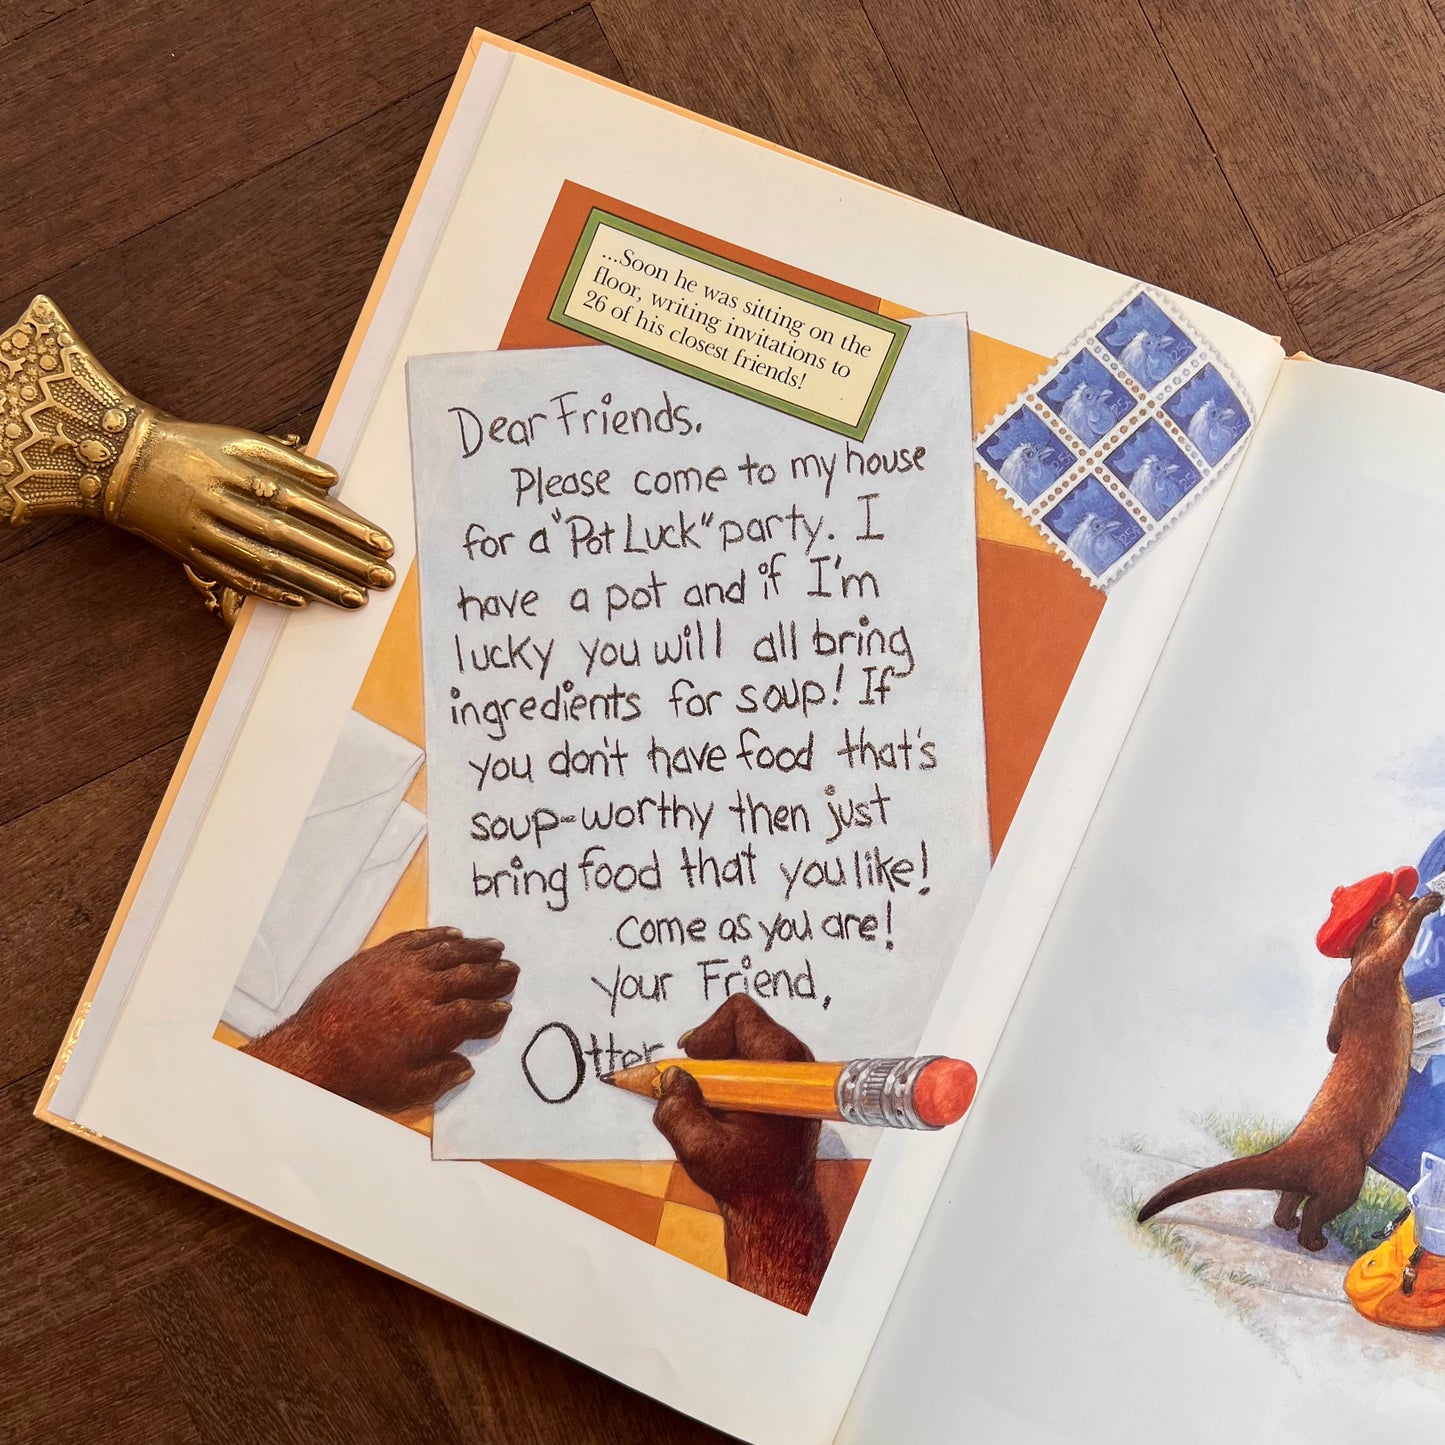 ...Soon he was sitting on the
floor, writing invitations to
26 of his closest friends!
Dear Friends,
Please come to my house
for a "Pot Luck" party. I
have a pot and if I'm
lucky you will all bring
ingredients for soup! If
you don't have food that's
soup-worthy then just
bring food that you like!
Come as you are!
Your Friend,
Otter